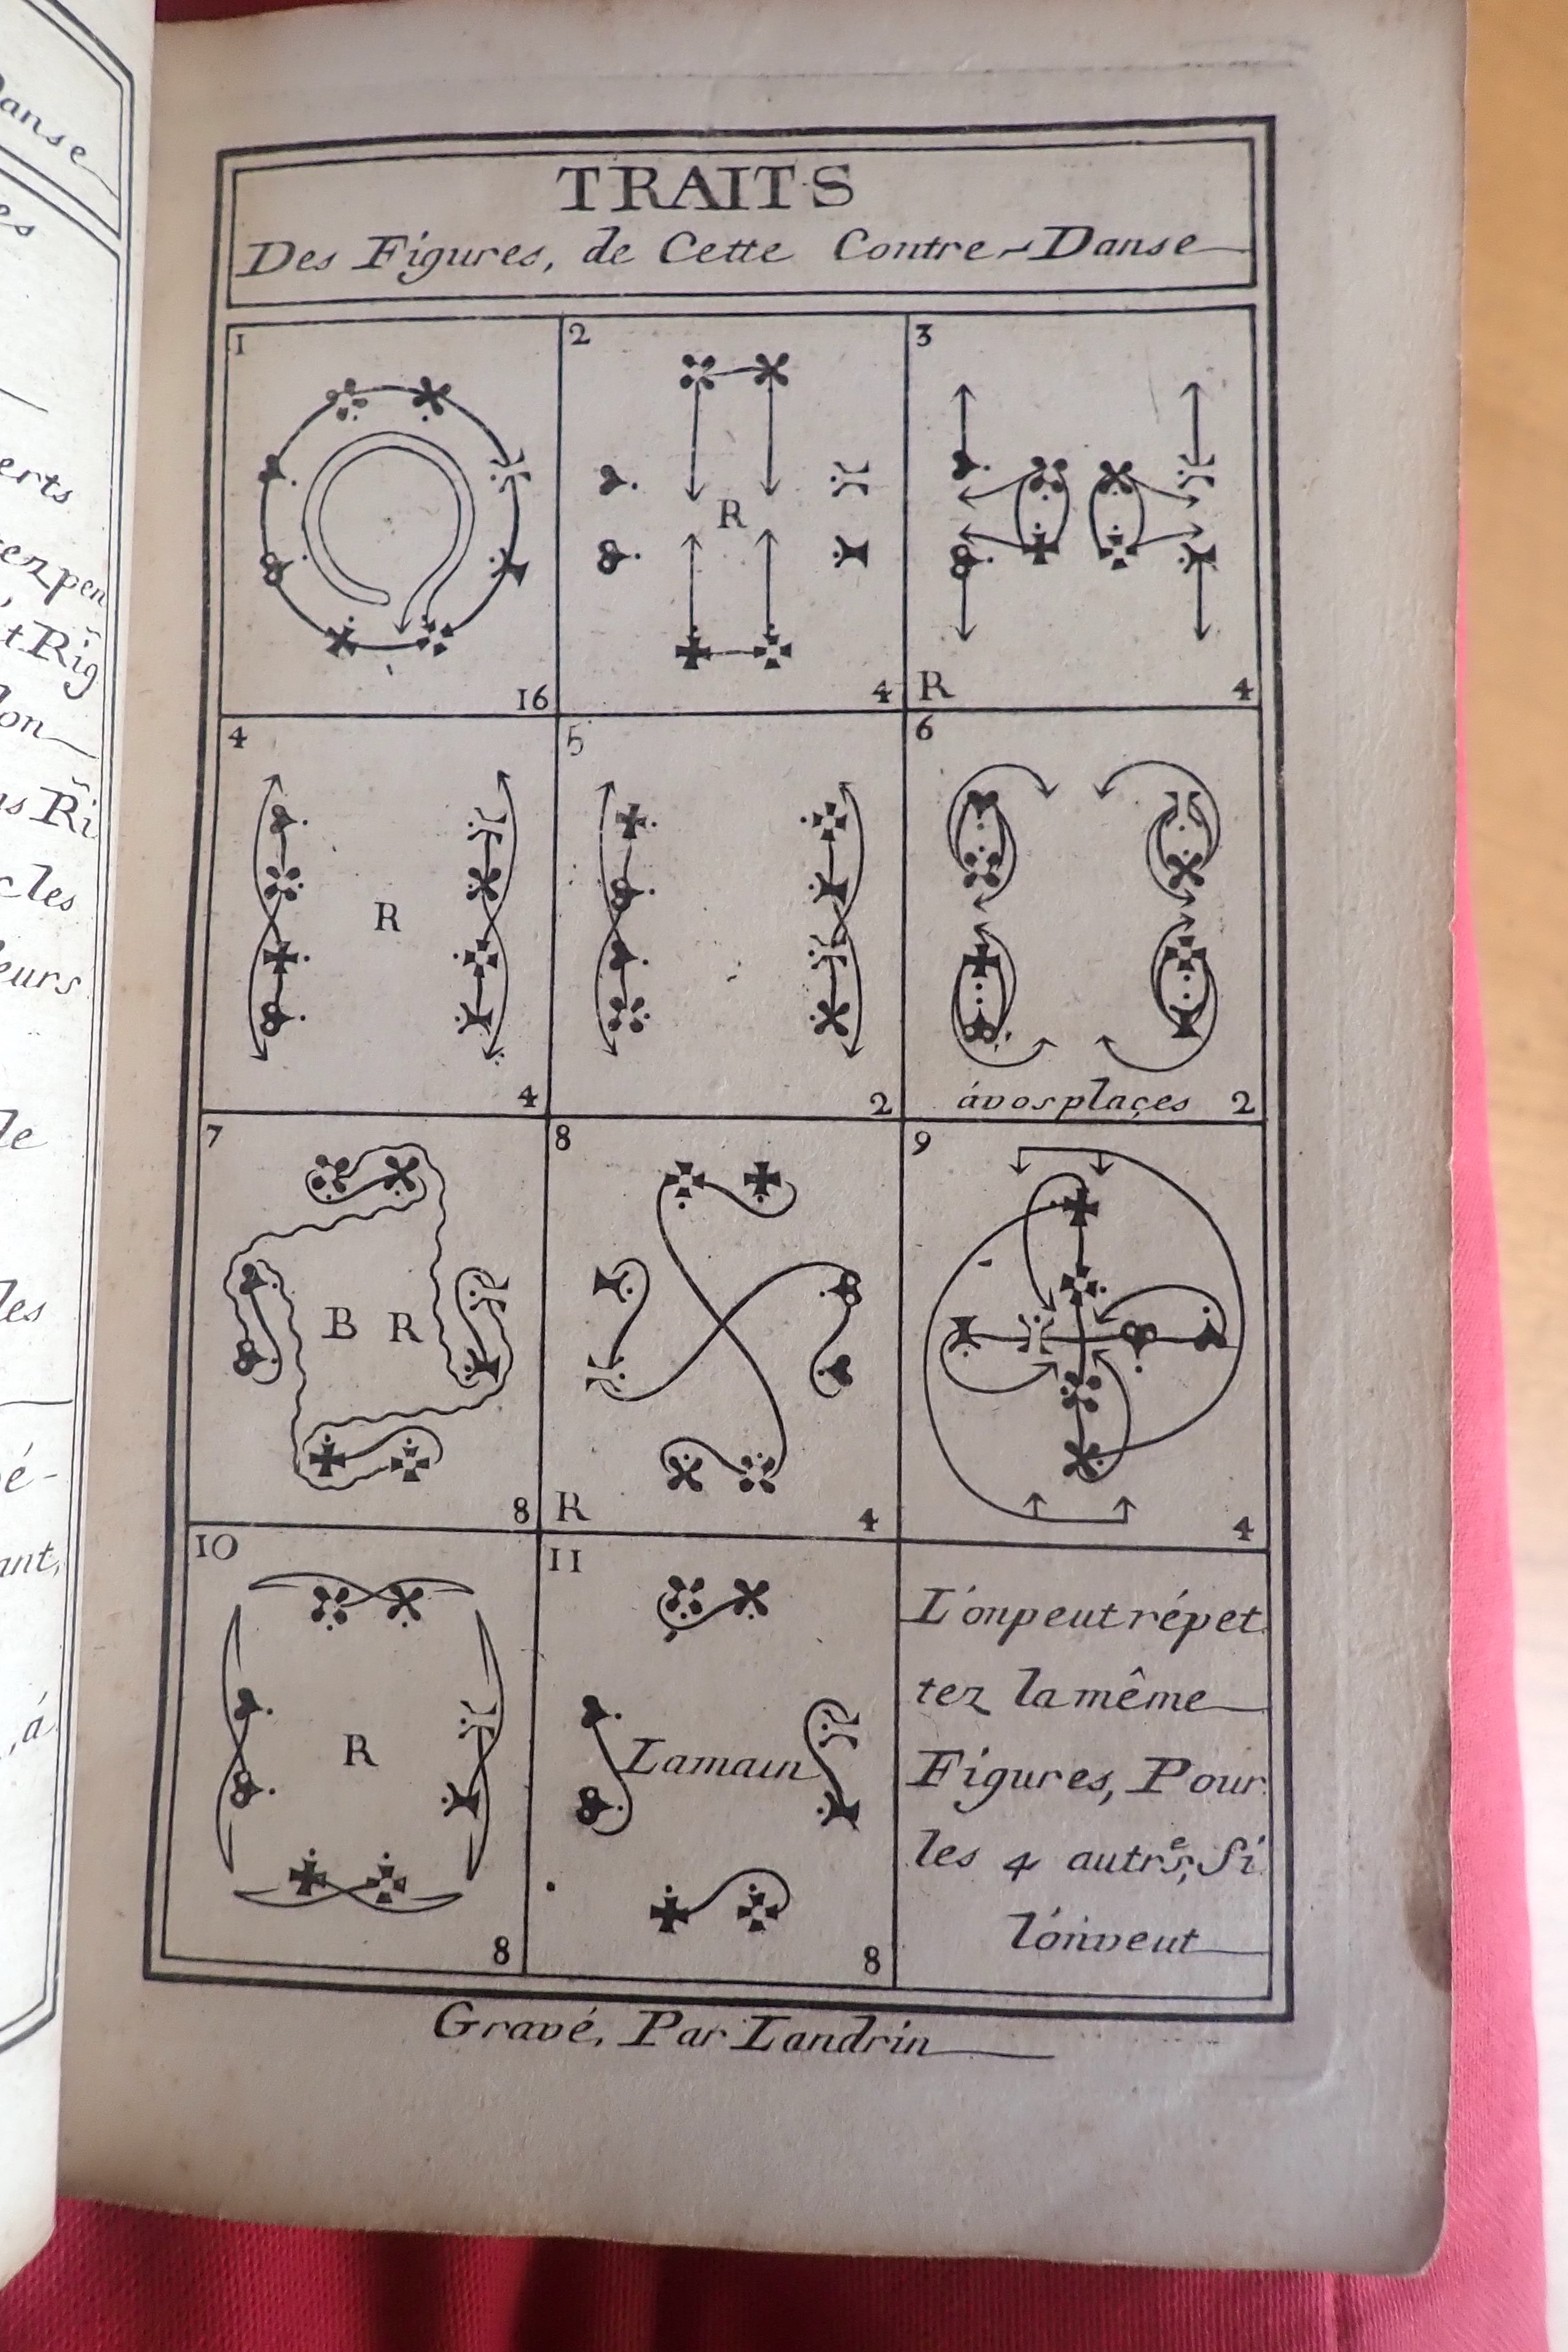 TRAITS
Des Figures, de Cette Contre-Danse
1
16
2
R
4
3
R
4
4
R
4
5
2
6
ávosplaçes 2
7
B R
8
8
R
4
9
4
10
R
8
11
Lamain
8
L'onpeutrépet
tez lamême
Figures, Pour
les 4 autres, Si
l'onveut
Gravé, Par Landrin
anse
es
erts
ezpen
t Rig
lon
ns Ri
c les
eurs
le
les
é-
ant,
, á